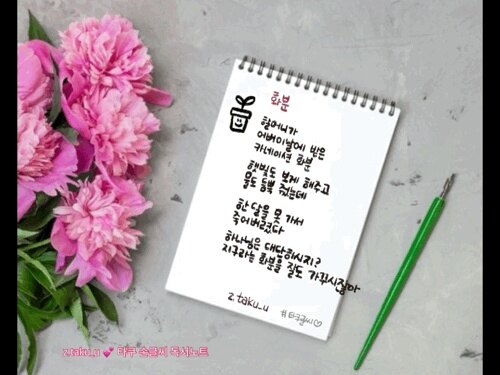 화분
할머니가
어버이날에 받은
카네이션 화분
햇빛도 보게 해주고
물도 듬뿍 줬는데
한 달을 못 가서
죽어버렸다
하나님은 대단하시지?
지구라는 화분을 잘도 가꾸시잖아
z.taku_u
#타쿠글씨♡
z.taku_u 💕 타쿠 손글씨 독서노트